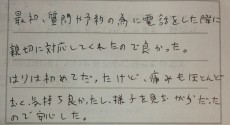 最初、質問や予約の為に電話をした際に
親切に対応してくれたので良かった。
はりは初めてだったけど、痛みもほとんど
なく、気持ち良かったし、様子を見ながらだった
ので安心した。